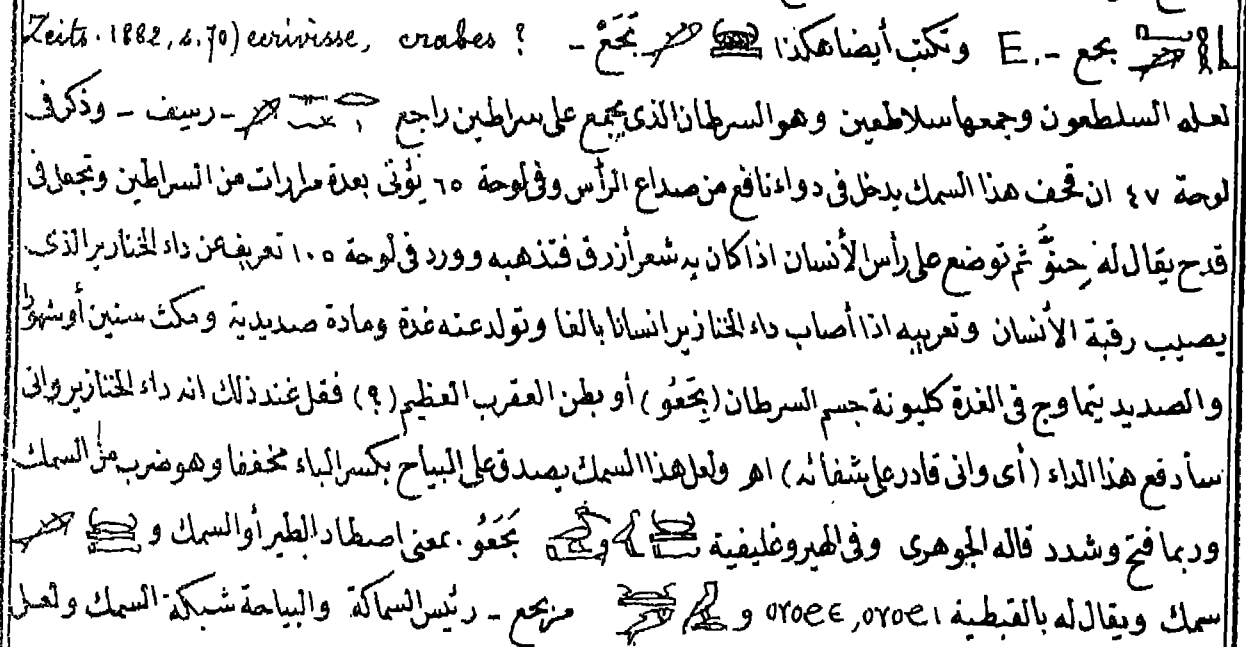 بحع -. E وتكتب أيضا هكذا بَحَعْ - Zeits. 1882, s. 70) ecrivisse, crabes ?
لعله السلطعون وجمعها سلاطعين وهو السرطان الذى يجمع على سراطين راجع - رسيف - وذكر فى
لوحة ٤٧ ان قحف هذا السمك يدخل فى دواء نافع من صداع الرأس وفى لوحة ٦٥ يؤتى بعدة مرارات من السراطين وتجعل فى
قدح يقال له حنوّ ثم توضع على رأس الأنسان اذا كان به شعر أزرق فتذهبه وورد فى لوحة ١٠٥ تعريف عن داء الخنازير الذى
يصيب رقبة الأنسان وتعريبه اذا أصاب داء الخنازير انسانا بالغا وتولد عنه غدة ومادة صديدية ومكث سنين أو شهورا
والصديد يتماوج فى الغدة كليونة جسم السرطان (بِحَعُو) أو بطن العقرب العظيم (؟) فقل عند ذلك انه داء الخنازير وانى
سأدفع هذا الداء (أى وانى قادر على شفائه) اهـ ولعل هذا السمك يصدق على البياح بكسر الباء مخففا وهو ضرب من السمك
وربما فتح وشدد قاله الجوهرى وفى الهيروغليفية و بَحَعُو . بمعنى اصطاد الطير أو السمك و
سمك ويقال له بالقبطية ⲟⲩⲟϩⲉ, ⲟⲩⲟϩⲓ و مزبحع - رئيس السماكة والبياحة شبكة السمك ولعل